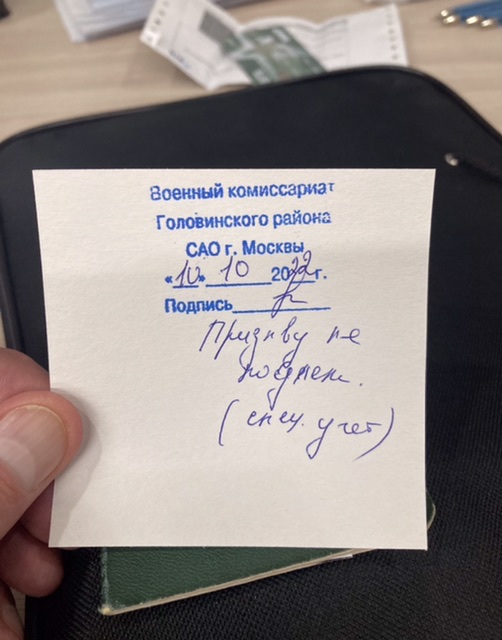 Военный комиссариат
Головинского района
САО г. Москвы
«10» 10 2022г.
Подпись
Призыву не
подлеж.
(спец. учет)